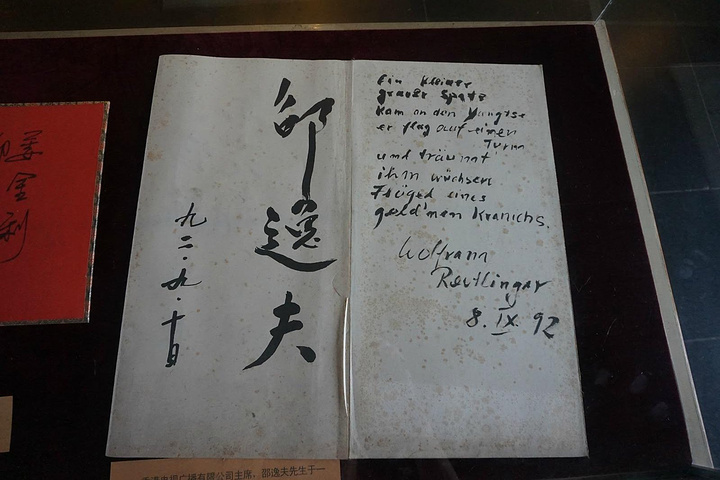 邵逸夫
九二·九·十日
Ein kleiner
grauer Spatz
kam an den Yangtse
er flog auf einen
Turm
und träumt'
ihm wüchsen
Flügel eines
gold'nen Kranichs.
Wolfram
Reutlinger
8. IX. 92
香港电视广播有限公司主席，邵逸夫先生于一